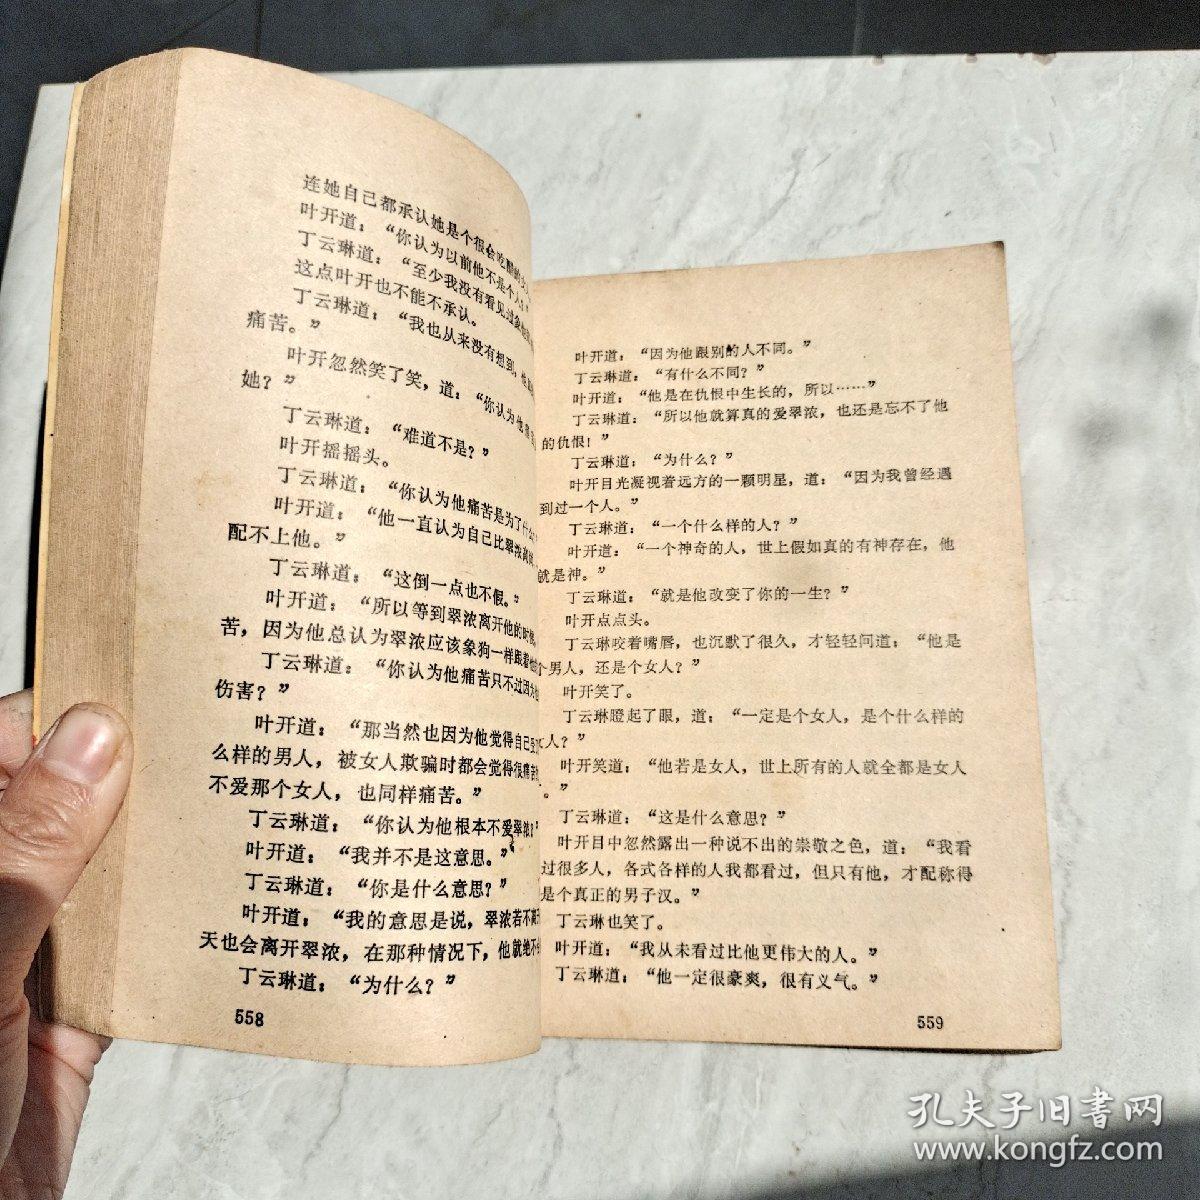 连她自己都承认她是个很会吃醋的女
叶开道：“你认为以前他不是个人？”
丁云琳道：“至少我没有看见过象他
这点叶开也不能不承认。
丁云琳道：“我也从来没有想到，他
痛苦。”
叶开忽然笑了笑，道：“你认为他痛
她？”
丁云琳道：“难道不是？”
叶开摇摇头。
丁云琳道：“你认为他痛苦是为了什么？
叶开道：“他一直认为自己比翠浓高
配不上他。”
丁云琳道：“这倒一点也不假。”
叶开道：“所以等到翠浓离开他的时候，
苦，因为他总认为翠浓应该象狗一样跟着他
丁云琳道：“你认为他痛苦只不过因为
伤害？”
叶开道：“那当然也因为他觉得自己
么样的男人，被女人欺骗时都会觉得很痛苦
不爱那个女人，也同样痛苦。”
丁云琳道：“你认为他根本不爱翠浓？”
叶开道：“我并不是这意思。”
丁云琳道：“你是什么意思？”
叶开道：“我的意思是说，翠浓若不离开
天也会离开翠浓，在那种情况下，他就绝不
丁云琳道：“为什么？”
558
叶开道：“因为他跟别的人不同。”
丁云琳道：“有什么不同？”
叶开道：“他是在仇恨中生长的，所以……”
丁云琳道：“所以他就算真的爱翠浓，也还是忘不了他
的仇恨！”
丁云琳道：“为什么？”
叶开目光凝视着远方的一颗明星，道：“因为我曾经遇
到过一个人。”
丁云琳道：“一个什么样的人？”
叶开道：“一个神奇的人，世上假如真的有神存在，他
就是神。”
丁云琳道：“就是他改变了你的一生？”
叶开点点头。
丁云琳咬着嘴唇，也沉默了很久，才轻轻问道：“他是
个男人，还是个女人？”
叶开笑了。
丁云琳瞪起了眼，道：“一定是个女人，是个什么样的
人？”
叶开笑道：“他若是女人，世上所有的人就全都是女人
。”
丁云琳道：“这是什么意思？”
叶开目中忽然露出一种说不出的崇敬之色，道：“我看
过很多人，各式各样的人我都看过，但只有他，才配称得
是个真正的男子汉。”
丁云琳也笑了。
叶开道：“我从未看过比他更伟大的人。”
丁云琳道：“他一定很豪爽，很有义气。”
559
孔夫子旧书网
www.kongfz.com